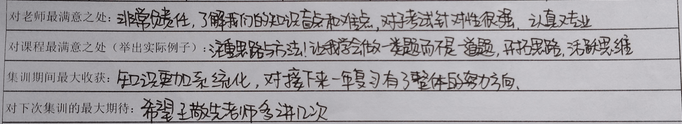 对老师最满意之处：非常负责任，了解我们的知识盲点和难点，对于考试针对性很强，认真又专业
对课程最满意之处（举出实际例子）：注重思路与方法！让我学会做一类题而不是一道题，开拓思路，活跃思维
集训期间最大收获：知识更加系统化，对接下来一年复习有了整体的努力方向。
对下次集训的最大期待：希望王敬先老师多讲几次